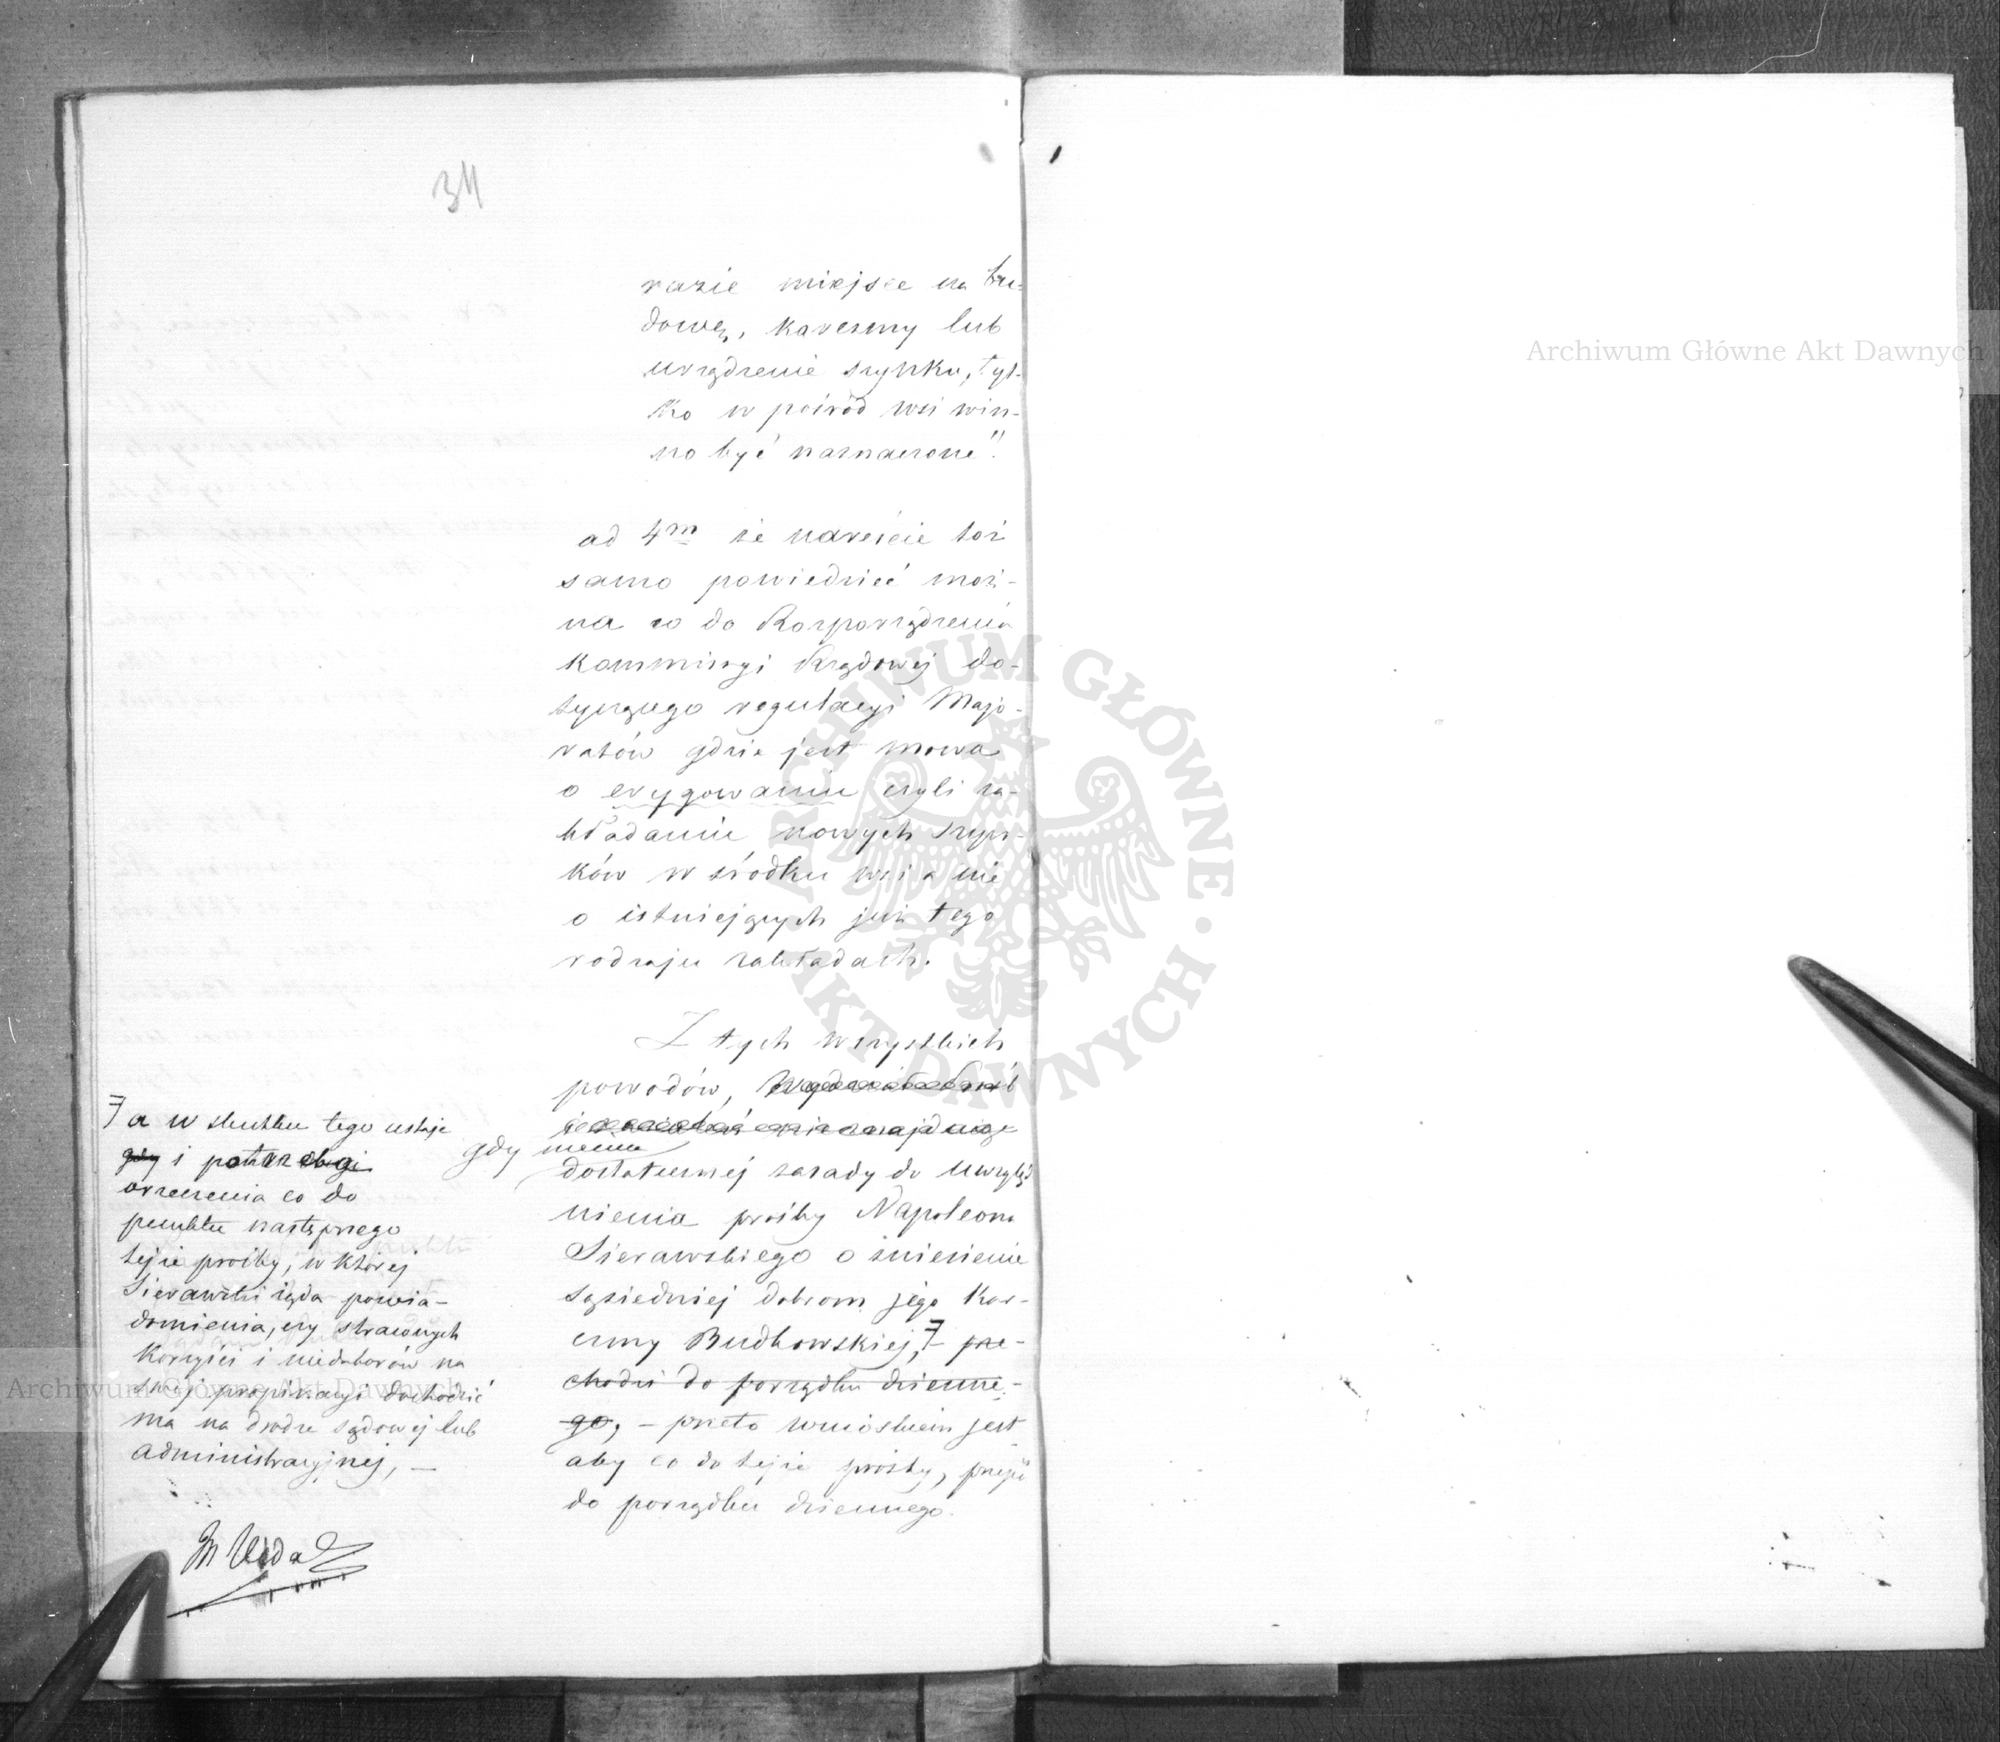 34
razie miejsce na bu-
dowę, karczmy lub
urządzenie szynku, tyl-
ko w pośród wsi win-
no być naznaczone".
ad 4m że nareście toż
samo powiedzieć moż-
na co do Rozporządzenia
Kommissyi Rządowej do-
tyczącego regulacyi Majo-
ratów gdzie jest mowa
o erygowaniu czyli za-
kładaniu nowych szyn-
ków w środku wsi a nie
o istniejących już tego
rodzaju zakładach.
Z tych wszystkich
powodów,
gdy niema
dostatecznej zasady do uwzglę-
nienia prośby Napoleona
Sierawskiego o zniesienie
sąsiedniej dobrom jego Kar-
czmy Budkowskiej, prze-
chodzi do porządku dzienne-
go, – przeto wnioskiem jest
aby co do tejże prośby, przejść
do porządku dziennego.
a w skutku tego ustaje
gdy i potrzeba
orzeczenia co do
punktu następnego
tejże prośby, w której
Sierawski żąda powia-
domienia, czy straconych
Korzyści i niedoborów na
swej propinacyi dochodzić
ma na drodze sądowej lub
administracyjnej, –
Archiwum Główne Akt Dawnych
Archiwum Główne Akt Dawnych
ARCHIWUM GŁÓWNE · AKT DAWNYCH ·